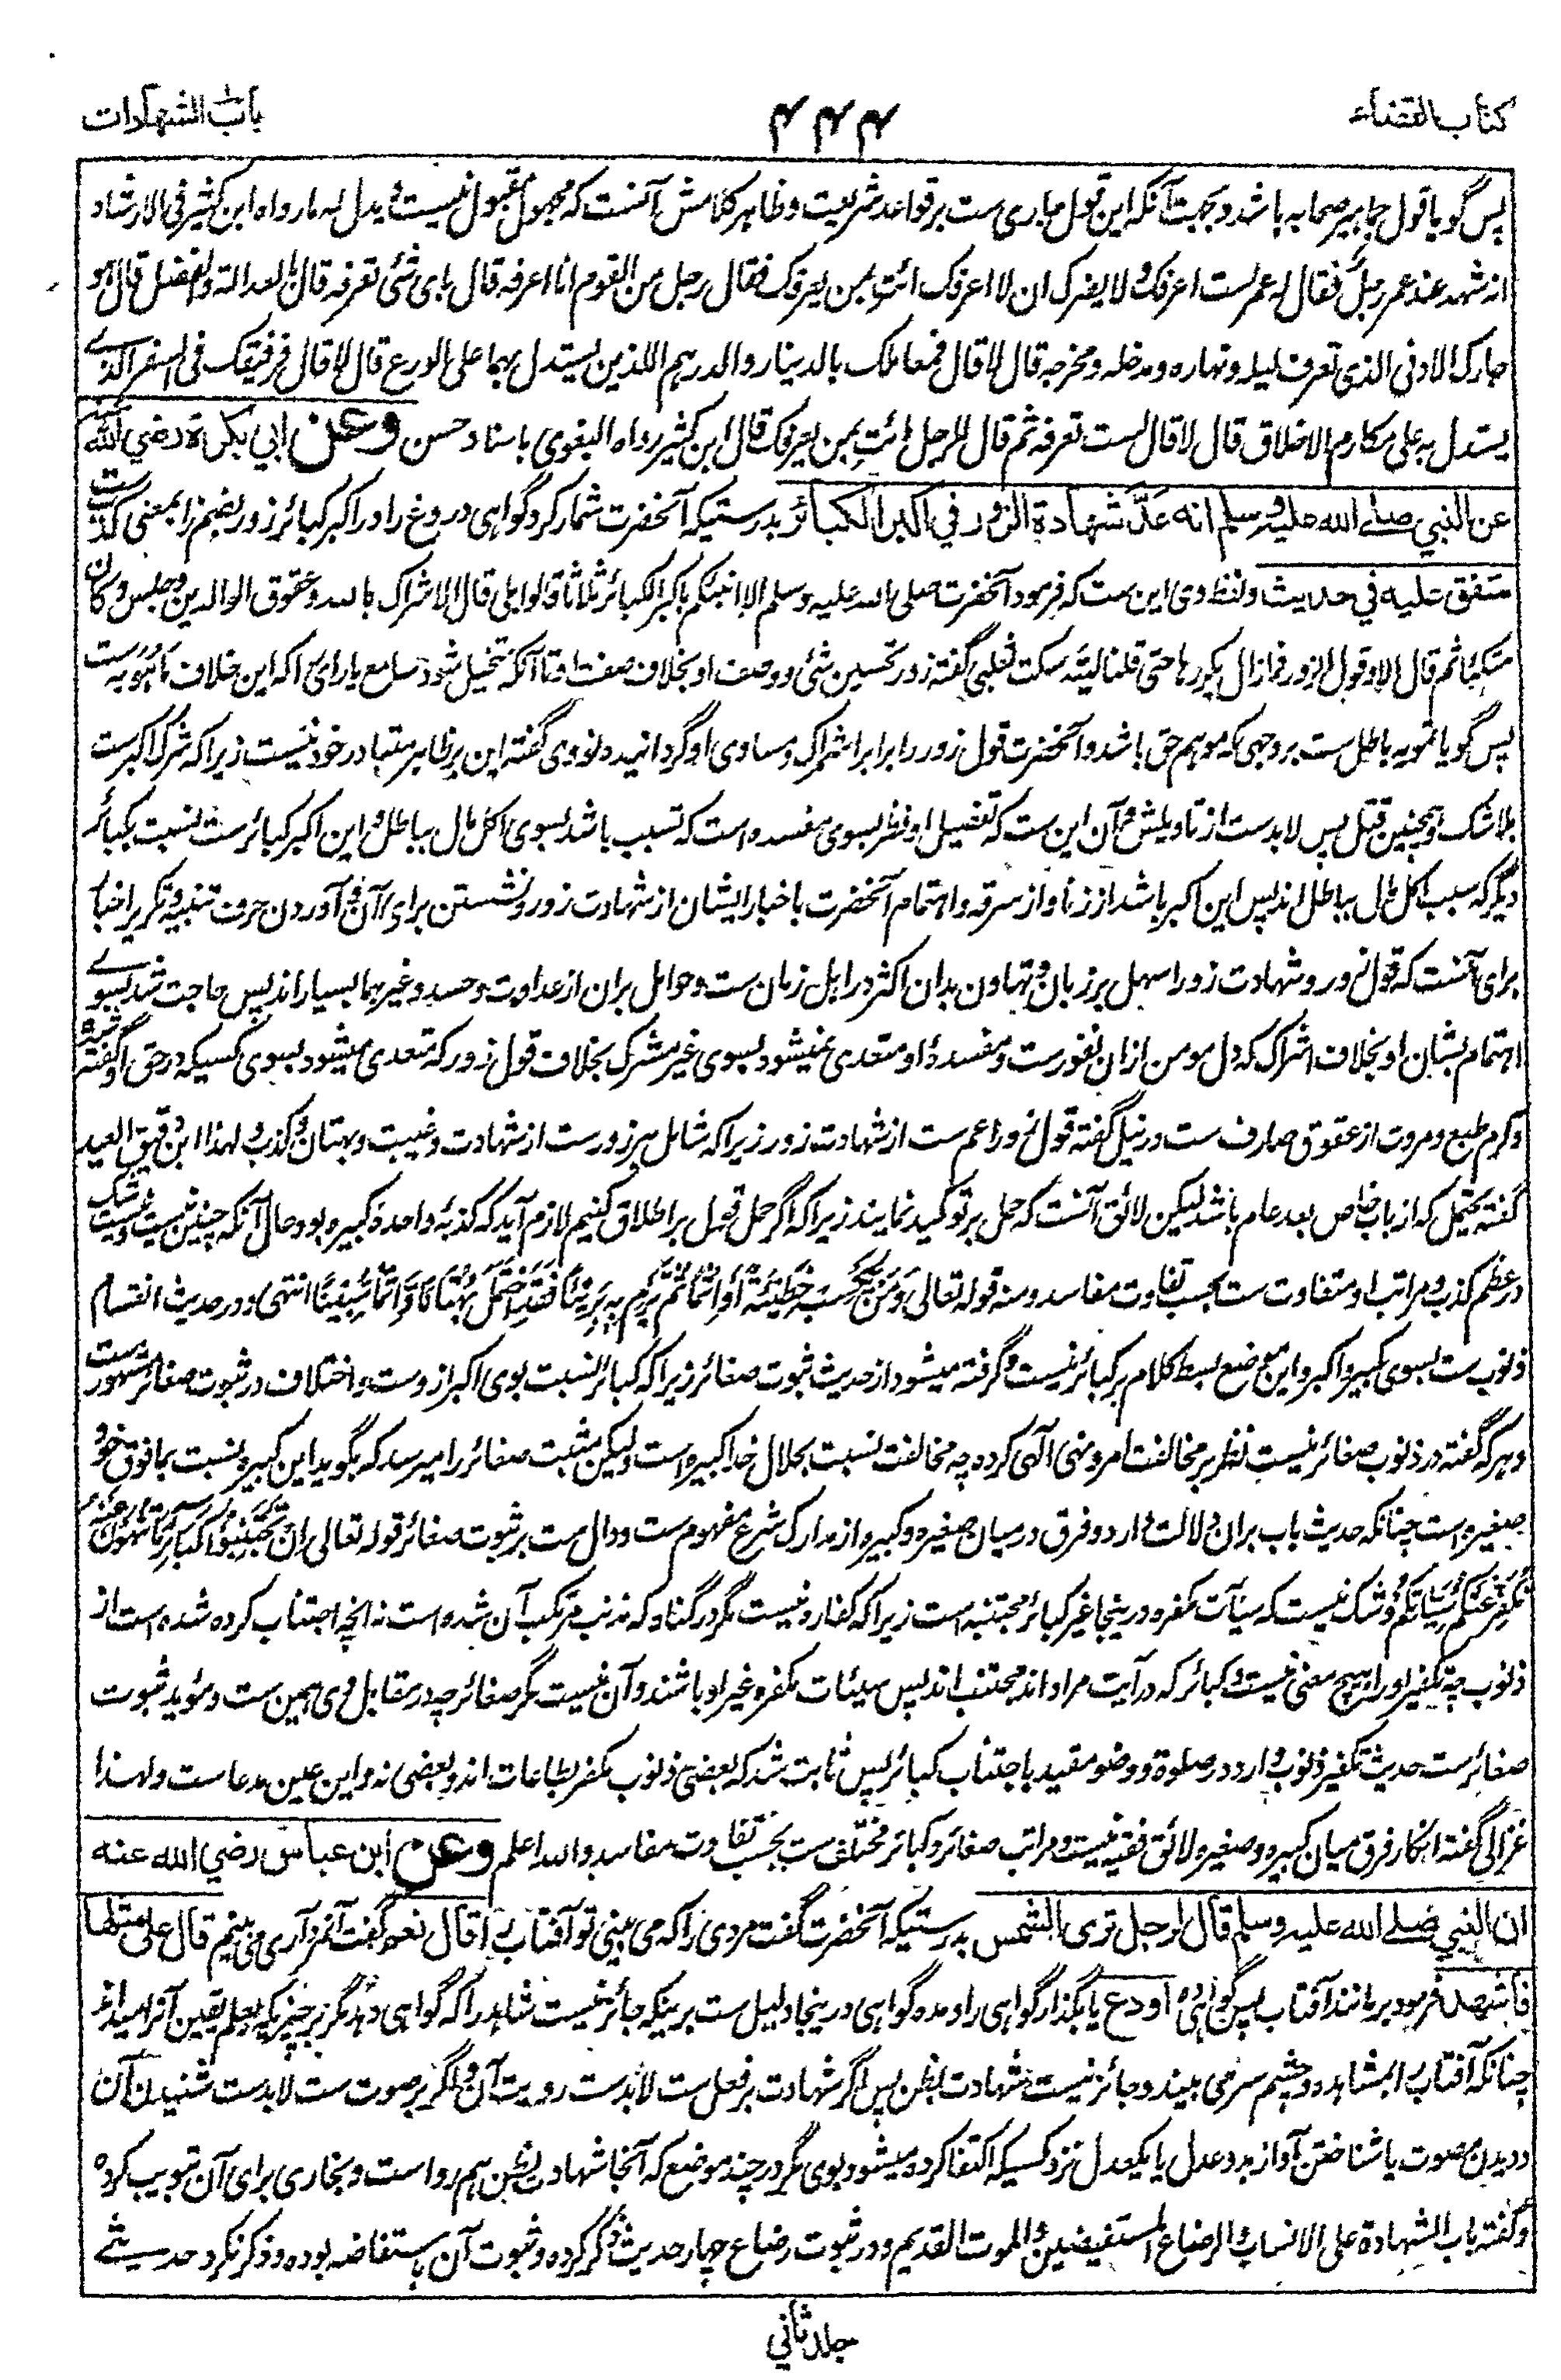 کتاب القضاء
۴۴۴
باب الشهادات
پس گویا قول جماہیر صحابہ باشد و بجہت آنکہ این قول جاری ست بر قواعد شریعت و ظاہر کلامش آنست کہ مجہول مقبول نیست و یدل لہ ما رواہ ابن کثیر فی الارشاد
انہ شہد عند عمر رجل فقال لہ عمر لست اعرفک و لا یضرک ان لا اعرفک ائت بمن یعرفک فقال رجل من القوم انا اعرفہ قال بای شئ تعرفہ قال بالعدالة و الفضل قال ہو
جارک الادنی الذی تعرف لیلہ و نہارہ و مدخلہ و مخرجہ قال لا قال فمعاملک بالدینار و الدرہم اللذین یستدل بہما علی الورع قال لا قال فرفیقک فی السفر الذے
یستدل بہ علی مکارم الاخلاق قال لا قال لست تعرفہ ثم قال للرجل ائت بمن یعرفک قال ابن کثیر رواہ البغوی باسناد حسن وعن ابي بكرة رضي الله
عن النبي صلے الله عليه وسلم انه عَدَّ شهادة الزور في اكبر الكبائر بدرستیکہ آنحضرت شمار کرد گواہی دروغ را در اکبر کبائر زور بضم زا بمعنی کذب ست
متفق عليه في حديث و لفظ وی این ست کہ فرمود آنحضرت صلی اللہ علیہ وسلم الا انبئکم باکبر الکبائر ثلاثا قالوا بلی قال الاشراک باللہ و عقوق الوالدین و جلس و کان
متکئا ثم قال الا و قول الزور فما زال یکررہا حتی قلنا لیتہ سکت ثعلبی گفتہ زور تحسین شئ و وصف او بخلاف صفت او تا آنکہ تخیل شود سامع یا رائی را کہ این خلاف ما ہو بہ ست
پس گویا تمویہ باطل ست بر وجہی کہ موہم حق باشد و آنحضرت قول زور را برابر اشراک و مساوی او گردانیدہ نووی گفتہ این بر ظاہر متبادر خود نیست زیرا کہ شرک اکبر ست
بلاشک و ہمچنین قتل پس لابد ست از تاویلش و آن این ست کہ تفضیل او نظر بسوی مفسدہ است کہ تسبب باشد بسوی اکل مال بباطل و این اکبر کبائر ست نسبت بکبائر
دیگر کہ سبب اکل مال بباطل اند پس این اکبر باشد از زنا و از سرقہ و اہتمام آنحضرت باخبار ایشان از شہادت زور و نشستن برای آن و آوردن حرف تنبیہ و تکریر اخبار
برای آنست کہ قول زور و شہادت زور اسہل بر زبان و تہاون بدان اکثر در اہل زمان ست و حوامل بران از عداوت و حسد و غیرہما بسیار اند پس حاجت شد بسوے
اہتمام بشان او بخلاف اشراک کہ دل مومن ازان نفور ست و مفسدۂ او متعدی نمیشود بسوی غیر مشرک بخلاف قول زور کہ متعدی میشود بسوی کسیکہ در حق او گفتہ شدہ
و کرم طبع و مروت از عقوق صارف ست در نیل گفتہ قول زور اعم ست از شہادت زور زیرا کہ شامل ہر زور ست از شہادت و غیبت و بہتان و کذب و لہذا ابن دقیق العید
گفتہ یحتمل کہ از باب خاص بعد عام باشد لیکن لائق آنست کہ حمل بر توکید نمایند زیرا کہ اگر حمل قول بر اطلاق کنیم لازم آید کہ کذبۂ واحدہ کبیرہ بود و حال آنکہ چنین نیست و نیست شک
در عظم کذب و مراتب او متفاوت ست بحسب تفاوت مفاسد و منہ قولہ تعالی وَمَنْ یَّکْسِبْ خَطِیْئَۃً اَوْ اِثْمًا ثُمَّ یَرْمِ بِہٖ بَرِیْئًا فَقَدِ احْتَمَلَ بُہْتَانًا وَّاِثْمًا مُّبِیْنًا انتہی و در حدیث انقسام
ذنوب ست بسوی کبیر و اکبر و این موضع بسط کلام بر کبائر نیست و گرفتہ میشود از حدیث ثبوت صغائر زیرا کہ کبائر نسبت بوی اکبر از وست و اختلاف در ثبوت صغائر مشہور ست
و ہر کہ گفتہ در ذنوب صغائر نیست نظر بر مخالفت امر و نہی آلہی کردہ چہ مخالفت نسبت بجلال خدا کبیرہ است و لیکن مثبت صغائر را میرسد کہ بگوید این کبیرہ نسبت بما فوق خود
صغیرہ است چنانکہ حدیث باب بران دلالت دارد و فرق در میان صغیرہ و کبیرہ از مدارک شرع مفہوم ست و دال ست بر ثبوت صغائر قولہ تعالی اِنْ تَجْتَنِبُوْا کَبَائِرَ مَا تُنْہَوْنَ عَنْہُ
نُکَفِّرْ عَنْکُمْ سَیِّئَاتِکُمْ و شک نیست کہ سیئات مکفرہ درینجا غیر کبائر مجتنبہ است زیرا کہ کفارہ نیست مگر در گناہ کہ مذنب مرتکب آن شدہ است نہ انچہ اجتناب کردہ شدہ است از
ذنوب چہ تکفیر او را ہیچ معنی نیست و کبائر کہ در آیت مراد اند مجتنب اند پس سیئات مکفرہ غیر او باشند و آن نیست مگر صغائر چہ در مقابل وی ہمین ست و مؤید ثبوت
صغائر ست حدیث تکفیر ذنوب وارد در صلوة و وضو مقید باجتناب کبائر پس ثابت شد کہ بعضی ذنوب مکفر بطاعات اند و بعضی نہ و این عین مدعاست و لہذا
غزالی گفتہ انکار فرق میان کبیرہ و صغیرہ لائق فقیہ نیست و مراتب صغائر و کبائر مختلف ست بحسب تفاوت مفاسد و اللہ اعلم وعن ابن عباس رضي الله عنه
ان النبي صلے الله عليه وسلم قال لرجل ترى الشمس بدرستیکہ آنحضرت گفت مردی را کہ می بینی تو آفتاب را قال نعم گفت آنمرد آری می بینم قال على مثلها
فاشهد فرمود بر مانند آفتاب پس گواہی دہ او دع یا بگذار گواہی را و مدہ گواہی درینجا دلیل ست برینکہ جائز نیست شاہد را کہ گواہی دہد مگر بر چیزیکہ بعلم یقین آنرا میداند
چنانکہ آفتاب را بمشاہدہ و چشم سر می بیند و جائز نیست شہادت بظن پس اگر شہادت بر فعل ست لابدست رویت آن و اگر بر صوت ست لابدست شنیدن آن
و دیدن مصوت یا شناختن آواز بدو عدل یا یکعدل نزد کسیکہ اکتفا کردہ میشود بوی مگر در چند موضع کہ آنجا شہادت بظن ہم رواست و بخاری برای آن تبویب کردہ
و گفتہ باب الشہادة علی الانساب و الرضاع المستفیض و الموت القدیم و در ثبوت رضاع چہار حدیث ذکر کردہ و ثبوت آن باستفاضہ بودہ و ذکر نکرد حدیثے
جلد ثاني